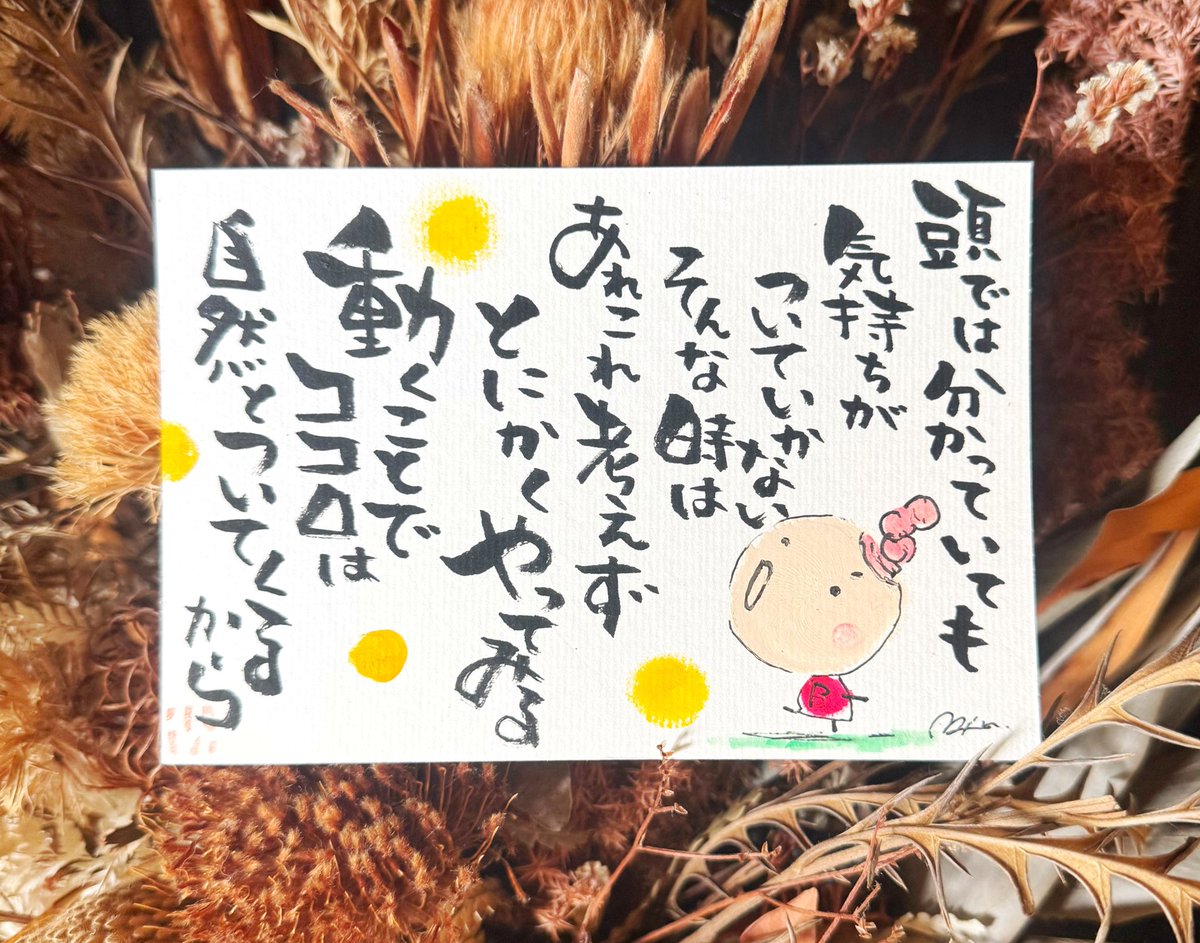 頭では分かっていても
気持ちが
ついていかない
そんな時は
あれこれ考えず
とにかく
やってみる
動くことで
ココロは
自然とついてくる
から
R